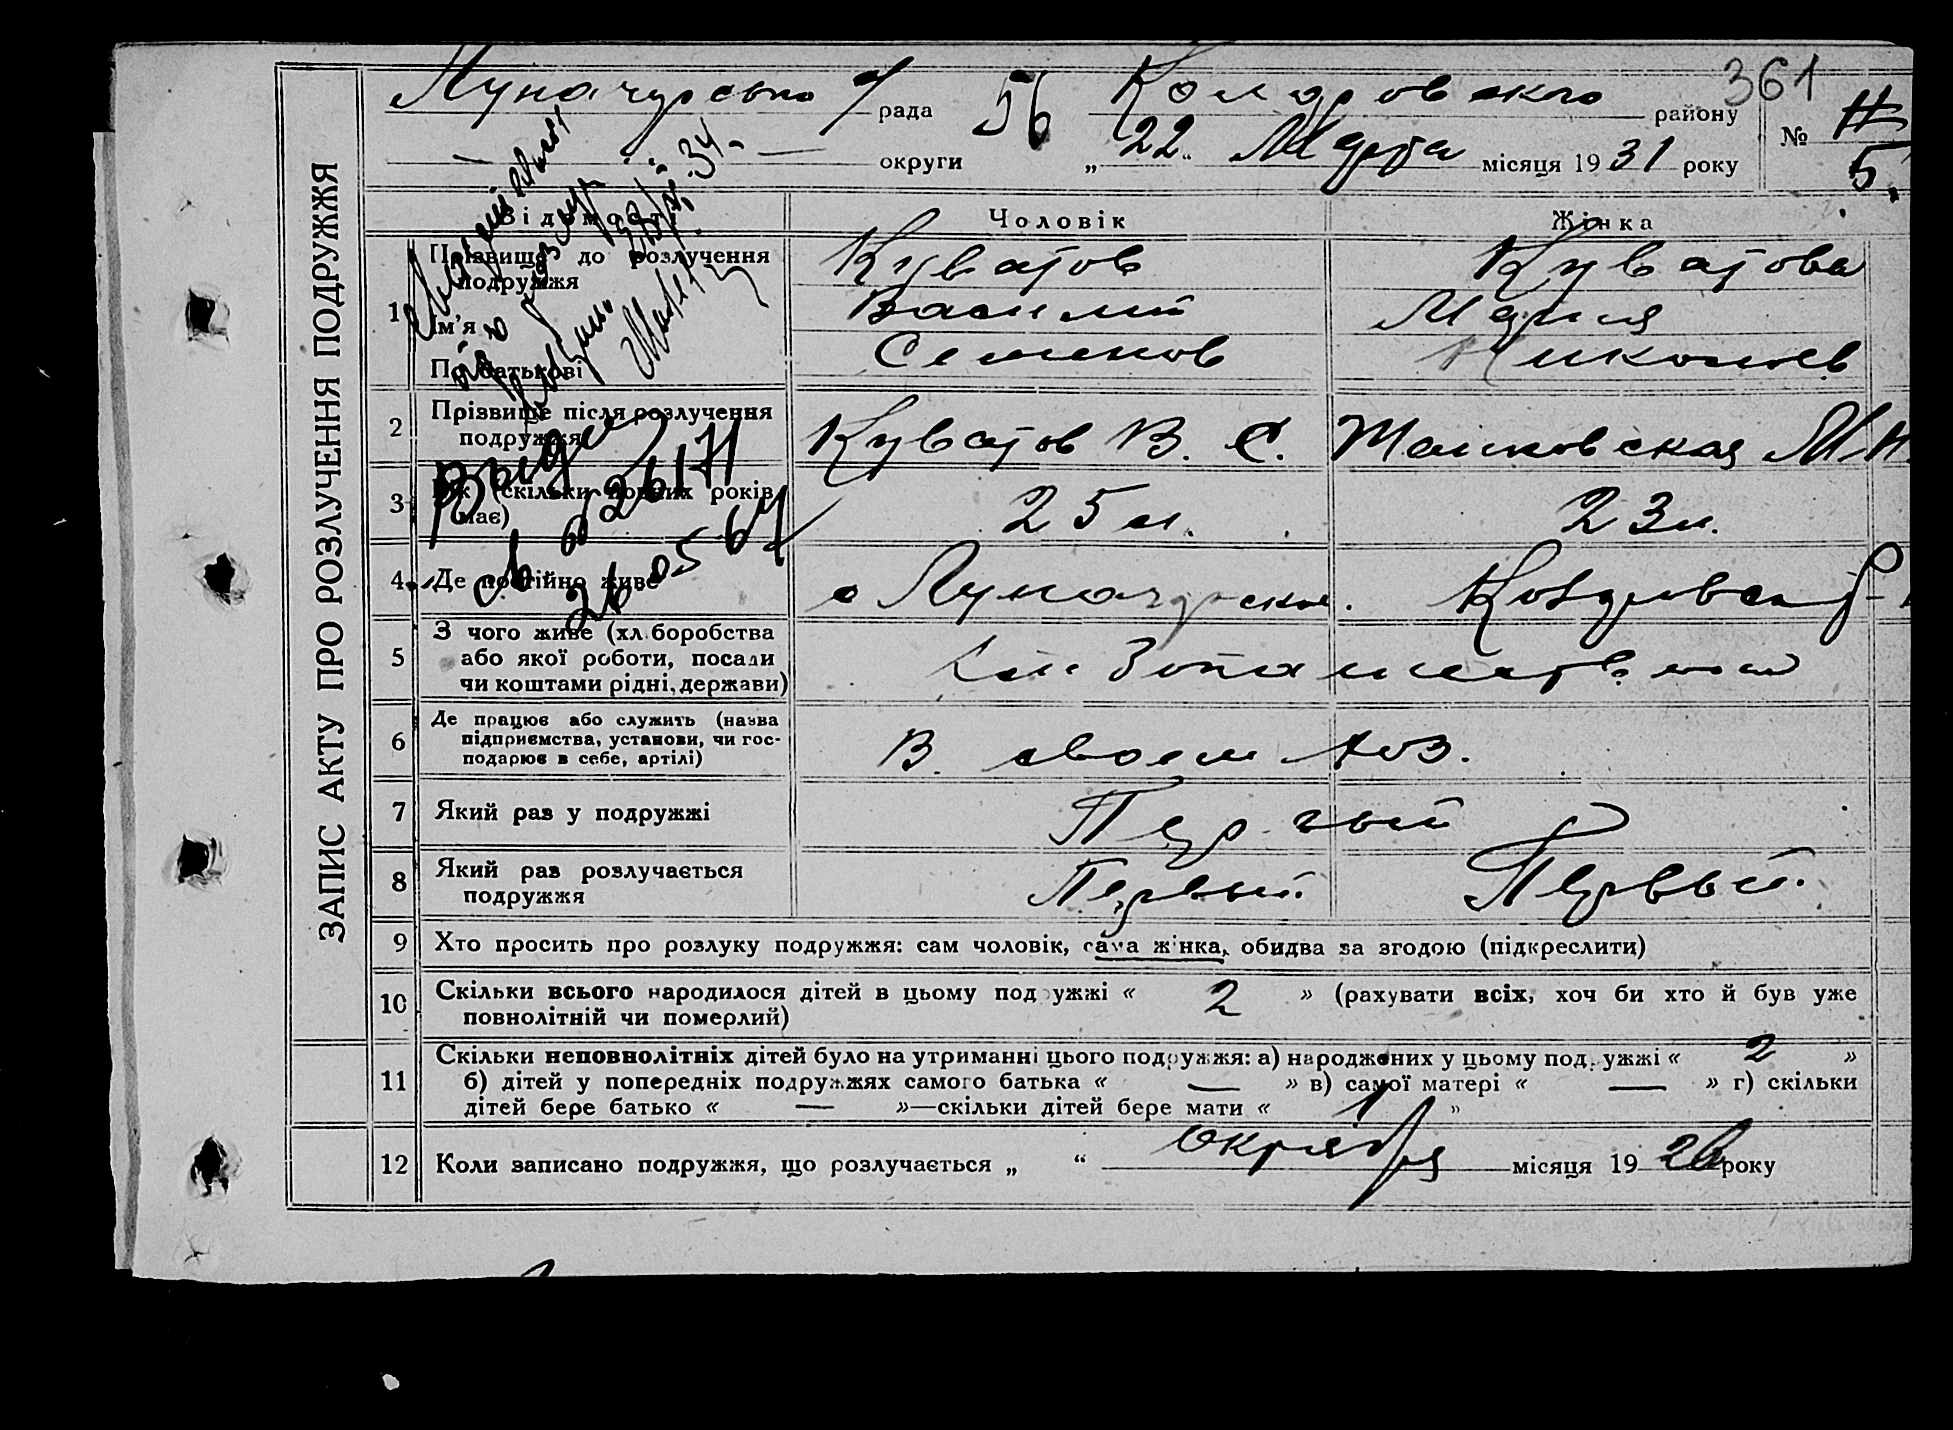 361
Луначарська с/рада 56 району
округи „22“ Марта місяця 1931 року
№ 5.
ЗАПИС АКТУ ПРО РОЗЛУЧЕННЯ ПОДРУЖЖЯ
Відомості Чоловік Жінка
1 Прізвище до розлучення подружжя Куватов Куватова
Ім'я Василий Мария
По батькові Семенов Николаев
2 Прізвище після розлучення
подружжя Куватов В. С.
3 Вік (скільки повних років
має) 25 л. 23 л.
4. Де постійно живе с Луначарское.
5 З чого живе (хліборобства
або якої роботи, посади
чи коштами рідні, держави)
6 Де працює або служить (назва
підприємства, установи, чи гос-
подарює в себе, артілі) В своем хоз.
7 Який раз у подружжі Первый
8 Який раз розлучається
подружжя Первый. Первый.
9 Хто просить про розлуку подружжя: сам чоловік, сама жінка, обидва за згодою (підкреслити)
10 Скільки всього народилося дітей в цьому подружжі « 2 » (рахувати всіх, хоч би хто й був уже
повнолітній чи померлий)
11 Скільки неповнолітніх дітей було на утриманні цього подружжя: а) народжених у цьому подружжі « 2 »
б) дітей у попередніх подружжях самого батька « — » в) самої матері « — » г) скільки
дітей бере батько « — »—скільки дітей бере мати « 1 »
12 Коли записано подружжя, що розлучається „ “ октября місяця 1926 року